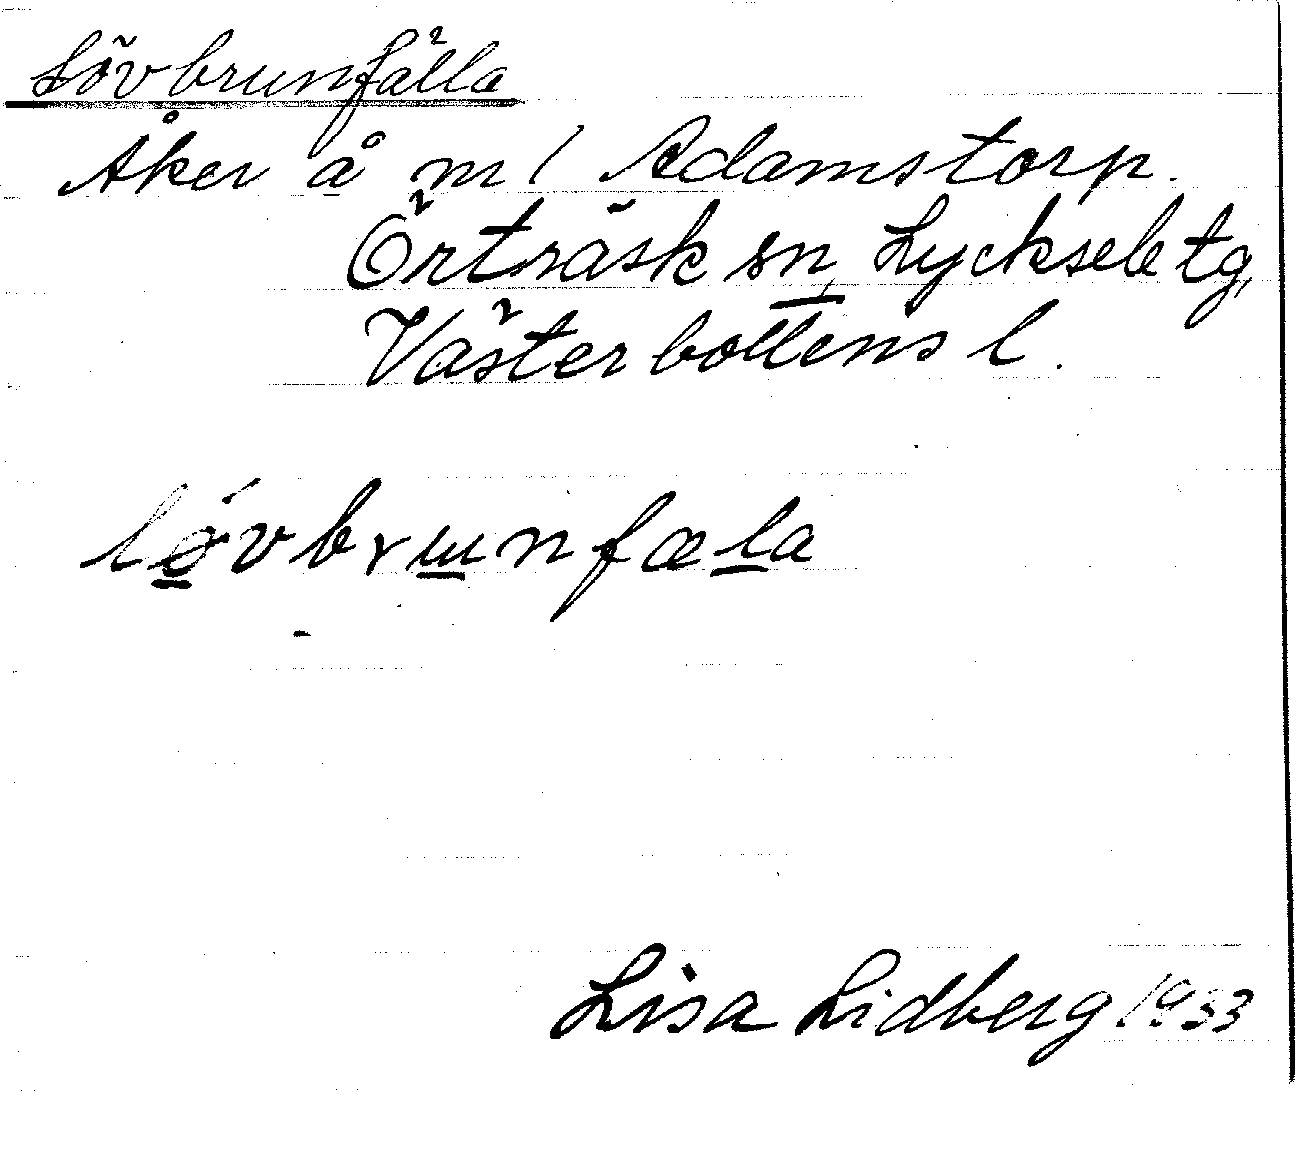 Lövbrunfälla
Åker å m/ Adamstorp.
Örträsk sn, Lycksele tg,
Västerbottens l.
lǿvbrɯnfæla
Lisa Lidberg 1933